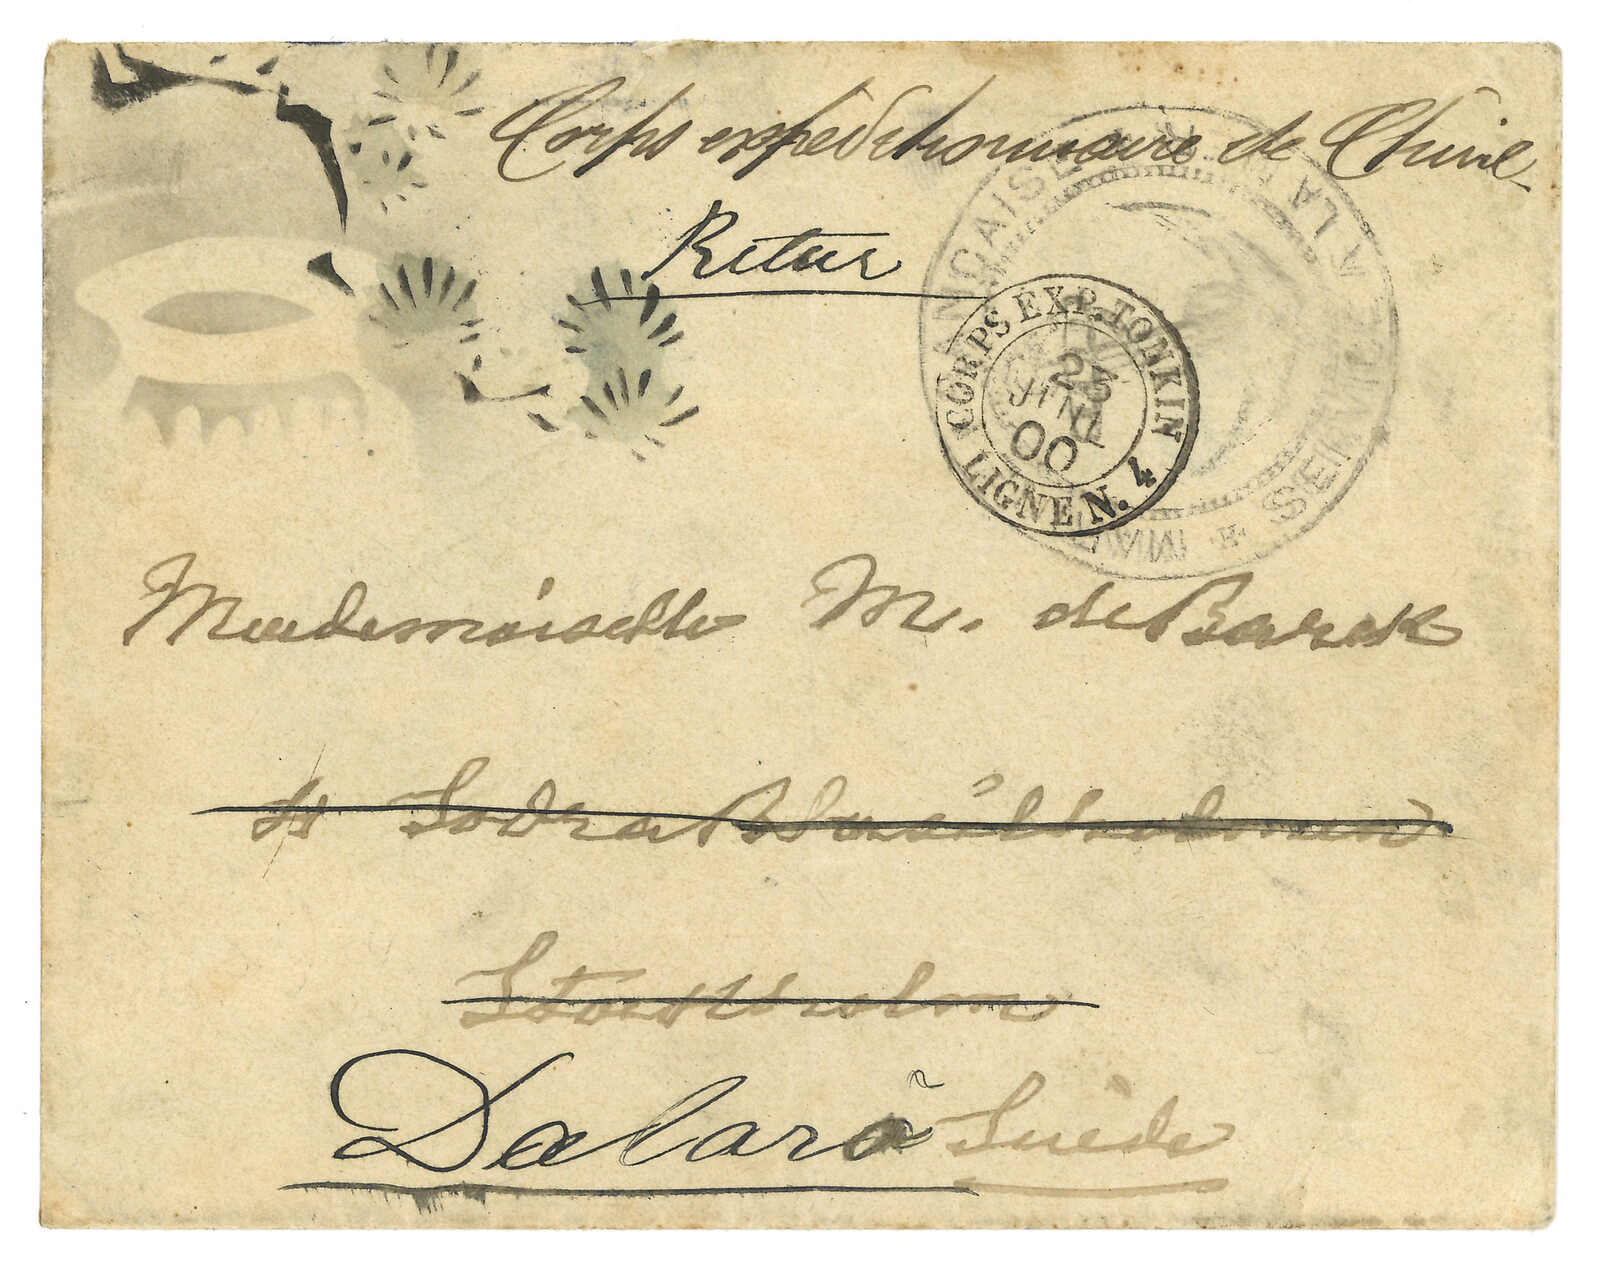 Corps expéditionnaire de Chine
Retur
CORPS EXP. TONKIN
25
JUIL
00
LIGNE N. 4
SERVICE A LA MER
Mademoiselle M. de
Södra
Stockholm
Dalarö Suède